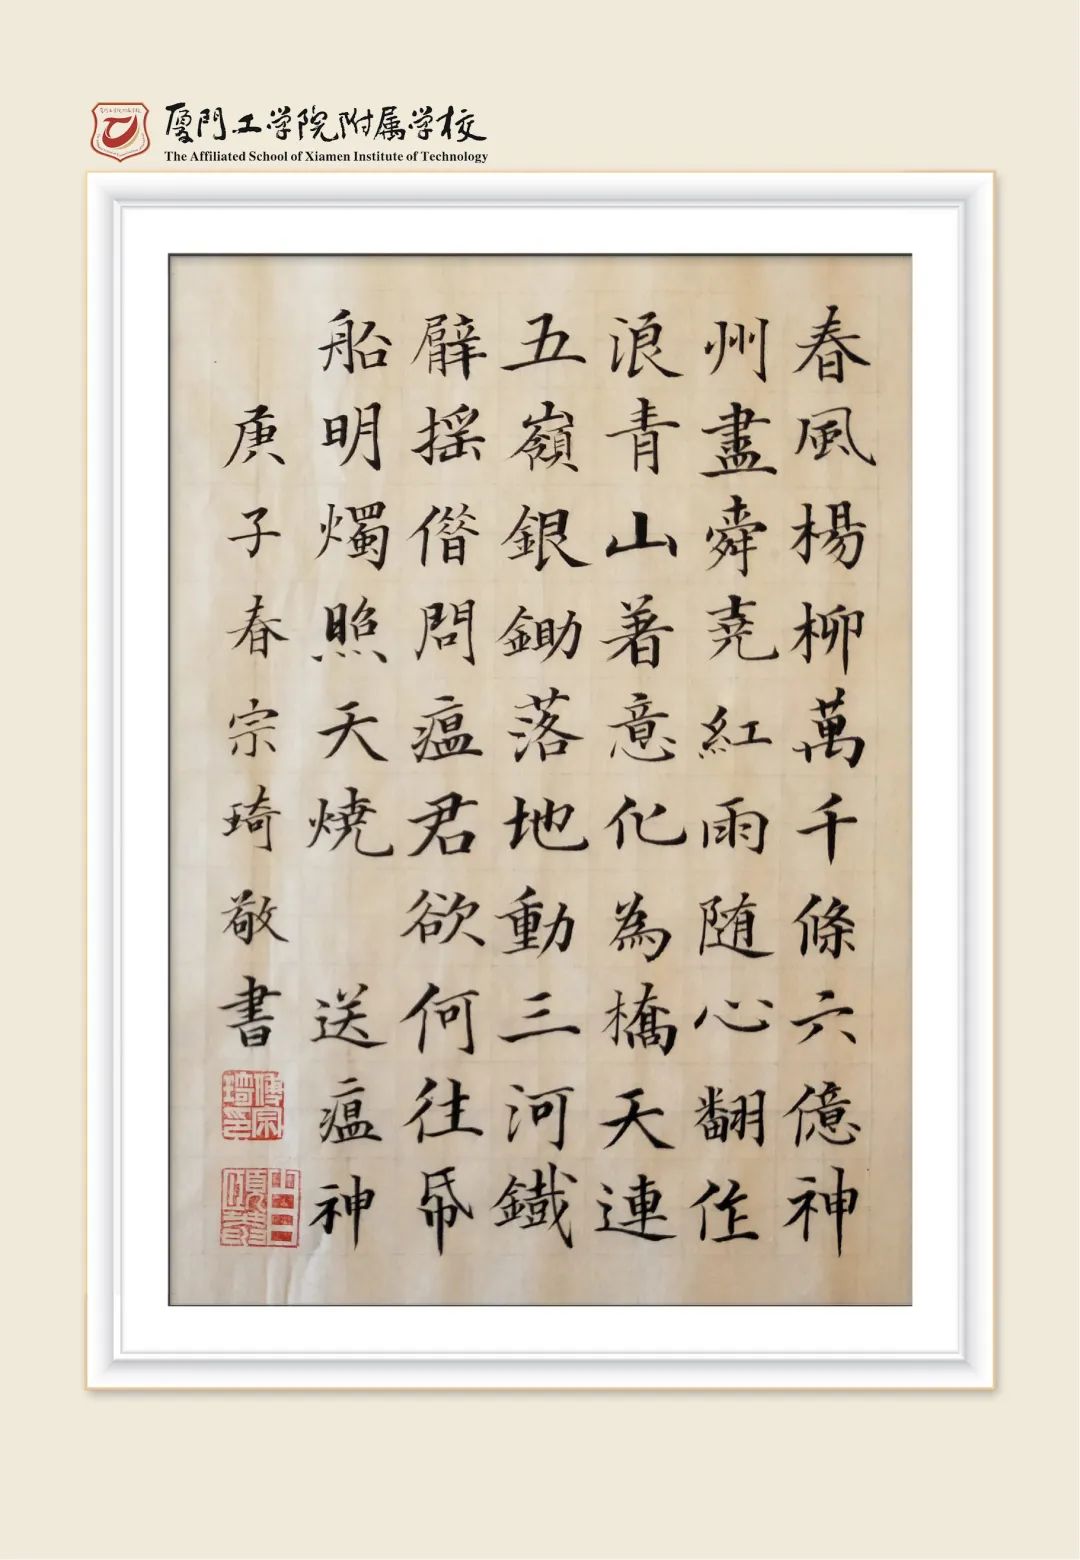 厦門工学院附属学校
The Affiliated School of Xiamen Institute of Technology
春風楊柳萬千條六億神
州盡舜堯紅雨随心翻作
浪青山著意化為橋天連
五嶺銀鋤落地動三河鐵
臂摇借問瘟君欲何往帋
船明燭照天燒 送瘟神
庚子春宗琦敬書
傅宗琦印